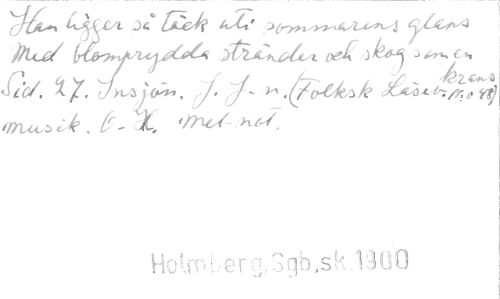 Han ligger så täck uti sommarens glans
Med blomprydda stränder och skog som en
krans
Sid. 27. Insjön. J. J-n. (Folksk Läseb. N:o 48)
musik. O-H. Mel-not.
Holmberg, Sgb, sk. 1900